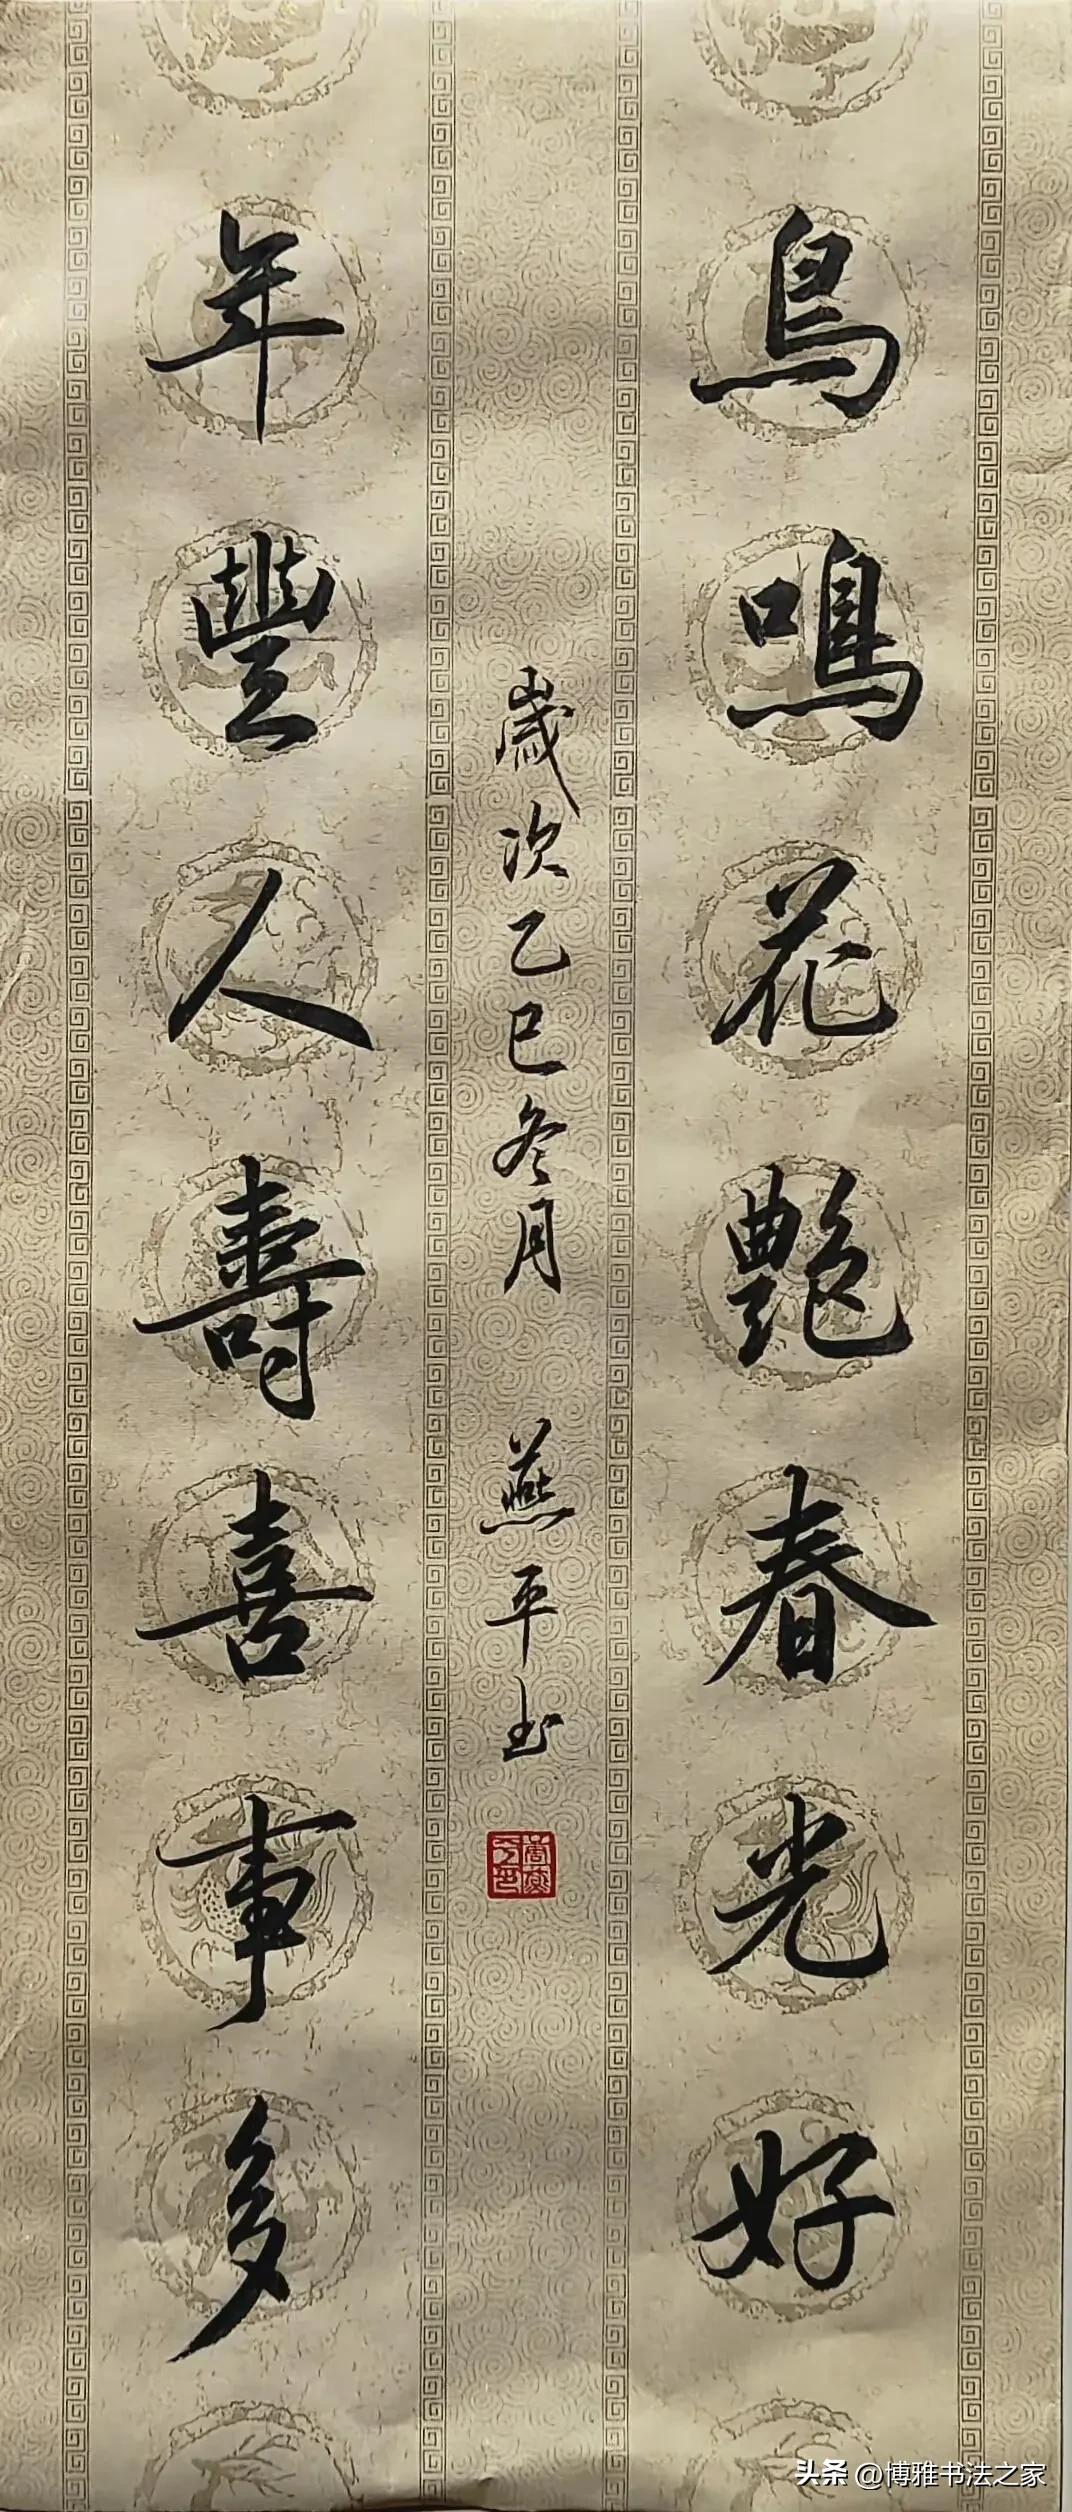 鳥鳴花艶春光好
歲次乙巳冬月 燕平书
年豐人壽喜事多
头条 @博雅书法之家